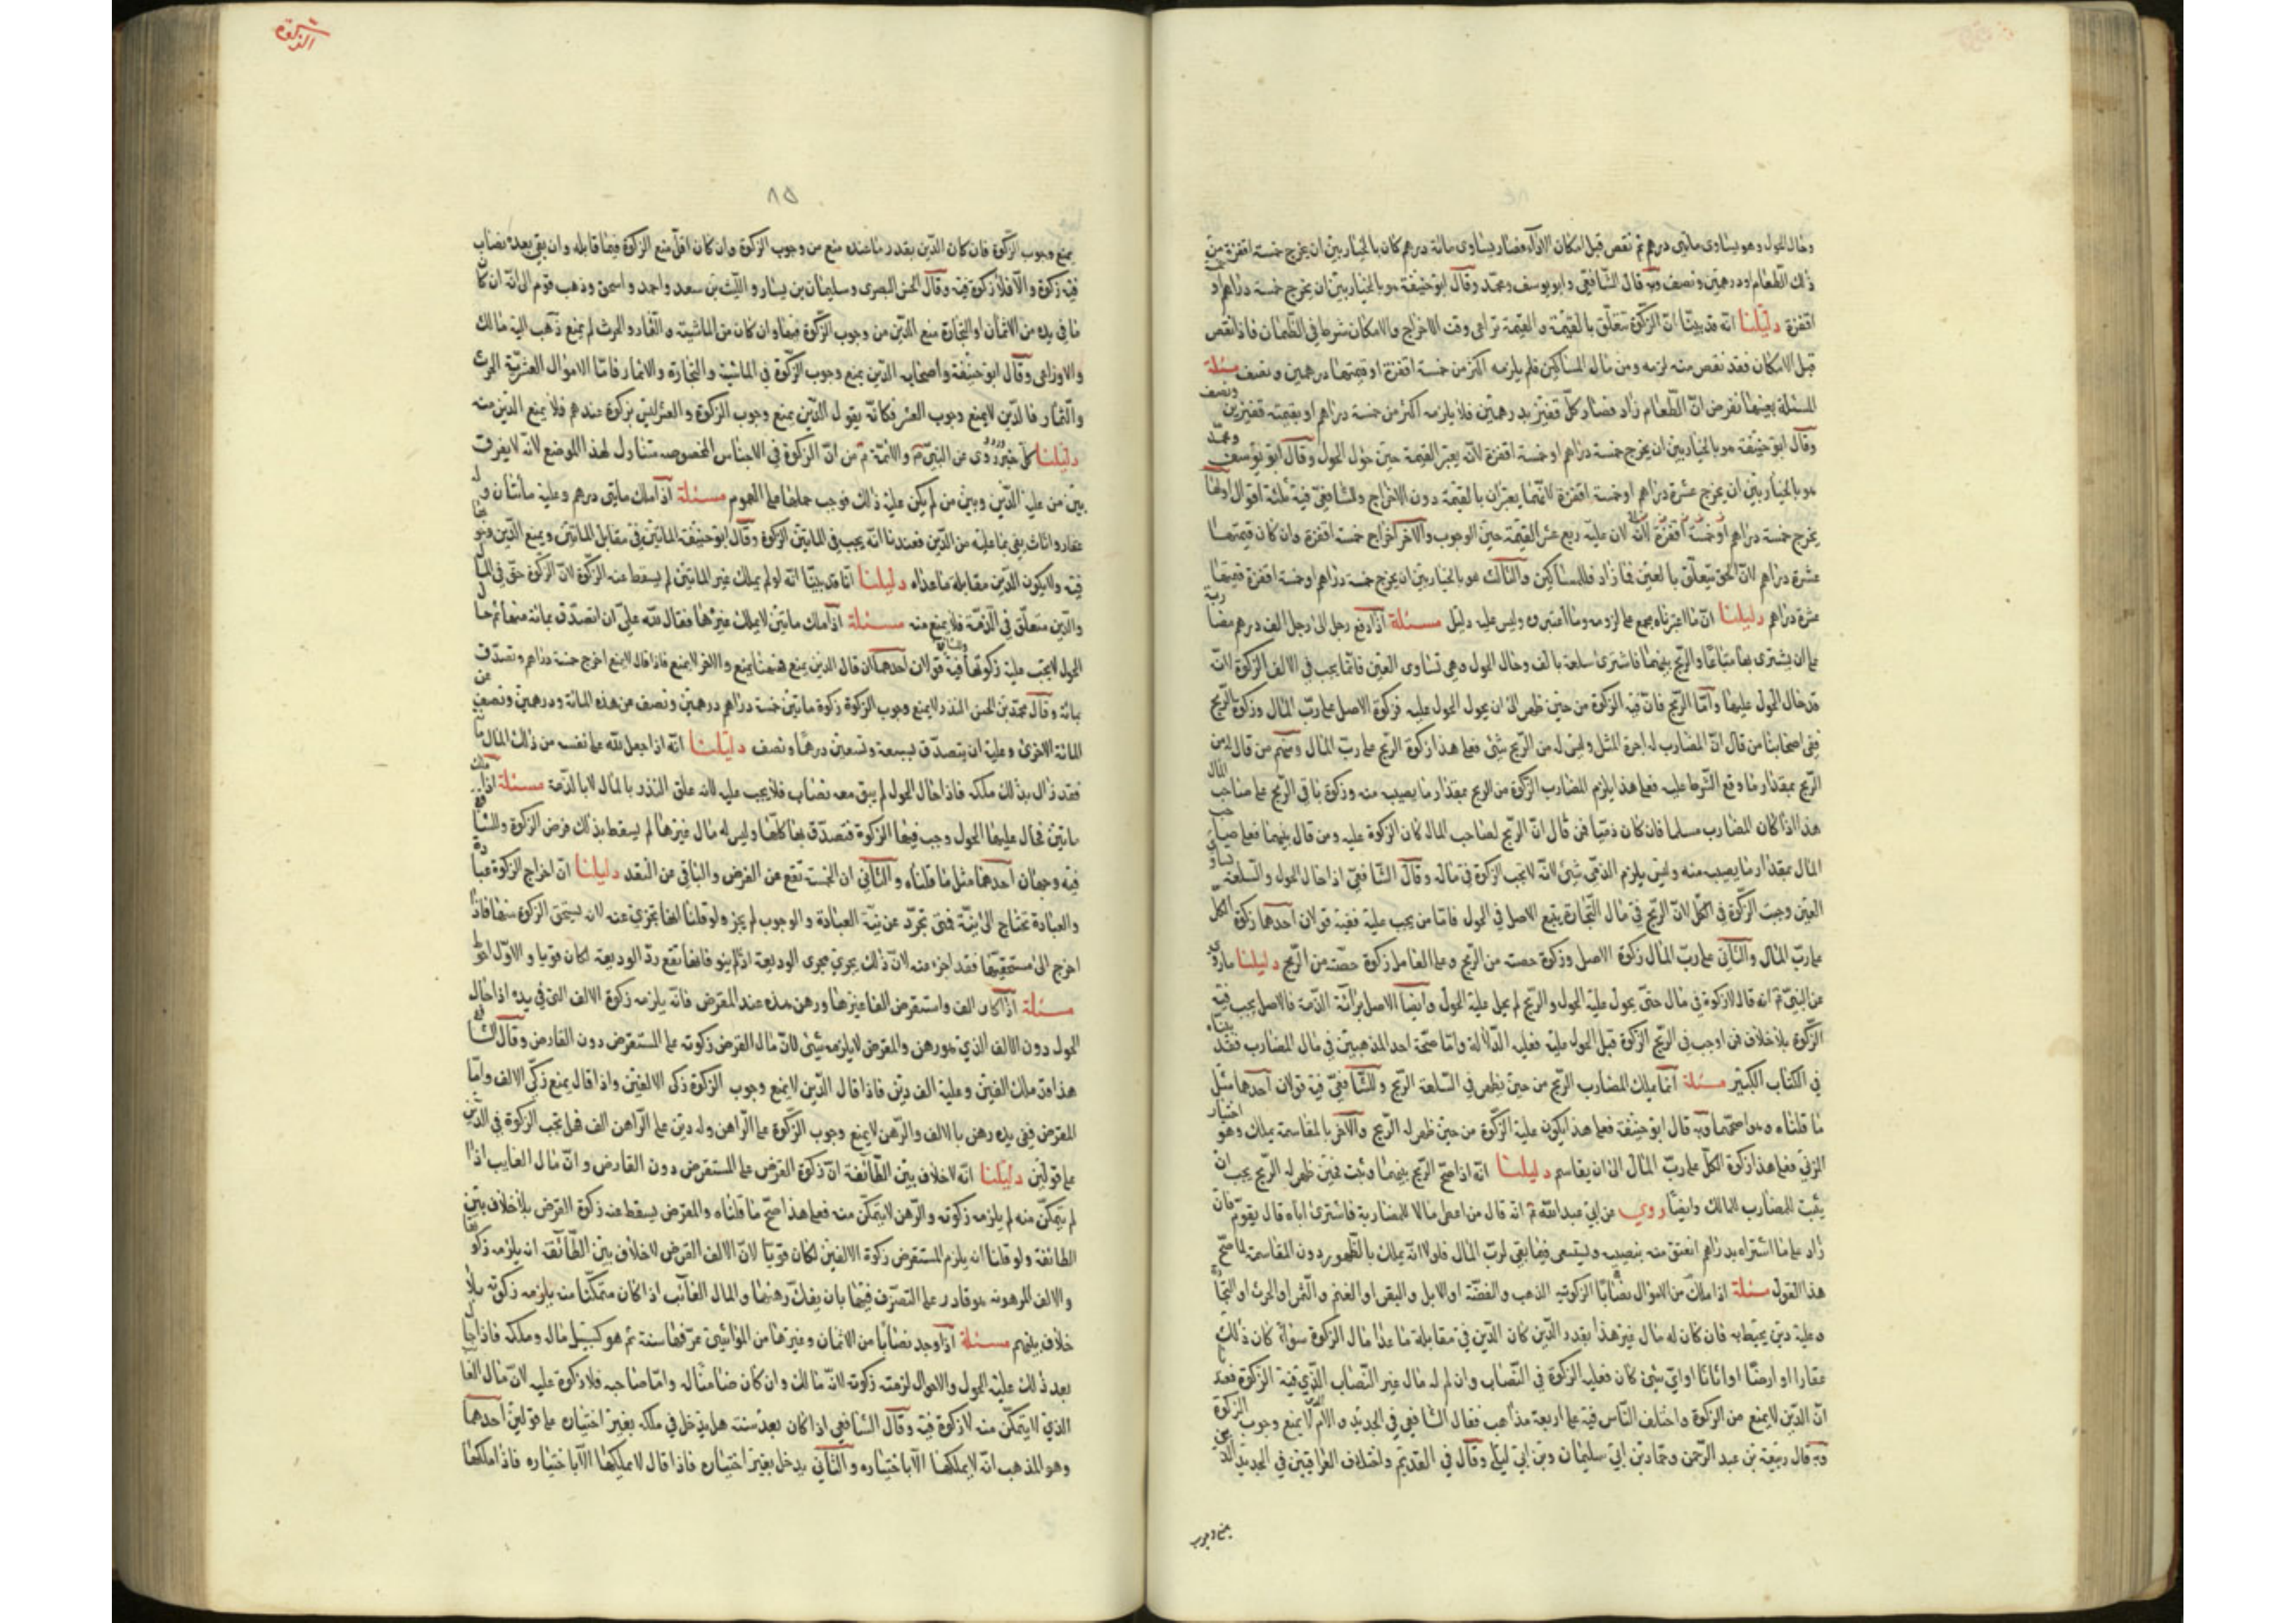 وحال الحول وهو يساوى مأتى درهم ثم نقص قبل امكان الاداء فصار يساوى مائة درهم كان بالخيار بين ان يخرج خمسة اقفزة من
ذلك الطعام او درهمين ونصف وبه قال الشافعى وابو يوسف ومحمد وقال ابو حنيفة هو بالخيار بين ان يخرج خمسة دراهم او خمسة
اقفزة دليلنا انه قد بينا ان الزكوة تتعلق بالقيمة والقيمة تراعى وقت الاخراج والامكان شرط فى الضمان فاذا نقص
قبل الامكان فقد نقص منه لزمه ومن مال المساكين فلم يلزمه اكثر من خمسة اقفزة او قيمتها درهمين ونصف مسئلة
المسئلة بعينها نفرض ان الطعام زاد فصار كل قفيز بدرهمين فلا يلزمه اكثر من خمسة دراهم او بقيمته قفيزين ونصف
وقال ابو حنيفة هو بالخيار بين ان يخرج خمسة دراهم او خمسة اقفزة لانه يعتبر القيمة حين حؤل الحول وقال ابو يوسف ومحمد
هو بالخيار بين ان يخرج عشرة دراهم او خمسة اقفزة لانهما يعتبران بالقيمة دون الاخراج وللشافعى فيه ثلثة اقوال اولها
يخرج خمسة دراهم او خمسة اقفزة لان عليه ربع عشر القيمة حين الوجوب والاخر اخراج خمسة اقفزة وان كان قيمتها
عشرة دراهم لان الحق يتعلق بالعين فما زاد فللمساكين والثالث هو بالخيار بين ان يخرج خمسة دراهم او خمسة اقفزة قيمتها
عشرة دراهم دليلنا ان ما اعتبرناه مجمع على لزومه وما اعتبروه ليس عليه دليل مسئلة اذا دفع رجل الى رجل الف درهم مضاربة
على ان يشترى بها متاعا والربح بينهما فاشترى سلعة بالف وحال الحول وهى تساوى الفين فانما يجب فى الالف الزكوة لان
قد حال الحول عليها واما الربح فان فيه الزكوة من حين ظهر الى ان يحول الحول عليه فزكوة الاصل على رب المال وزكوة الربح
ففى اصحابنا من قال ان المضارب له اجرة المثل وليس له من الربح شئ فعلى هذا زكوة الربح على رب المال ومنهم من قال له من
الربح بمقدار ما وقع الشرط عليه فعلى هذا يلزم المضارب الزكوة من الربح بمقدار ما يصيب منه وزكوة باقى الربح على صاحب المال
هذا اذا كان المضارب مسلما فان كان ذميا فمن قال ان الربح لصاحب المال كان الزكوة عليه ومن قال بينهما فعلى صاحب
المال بمقدار ما يصيب منه وليس يلزم الذمى شئ لانه لا تجب الزكوة فى ماله وقال الشافعى اذا حال الحول والسلعة تساوى
الفين وجبت الزكوة فى الكل لان الربح فى مال التجارة يتبع الاصل فى الحول فاما من يجب عليه ففيه قولان احدهما زكوة الكل
على رب المال والثانى على رب المال زكوة الاصل وزكوة حصته من الربح وعلى العامل زكوة حصته من الربح دليلنا ما روى
عن النبى ع انه قال لا زكوة فى مال حتى يحول عليه الحول والربح لم يحل عليه الحول وايضا الاصل براءة الذمة فالاصل يجب فيه
الزكوة بلا خلاف فمن اوجب فى الربح الزكوة قبل الحول عليه فعليه الدلالة واما صحة احد المذهبين فى مال المضارب فقد بيناه
فى الكتاب الكبير مسئلة انما يملك المضارب الربح من حين يظهر فى السلعة الربح وللشافعى فيه قولان احدهما مثل
ما قلناه وهو اصحهما وبه قال ابو حنيفة فعلى هذا يكون عليه الزكوة من حين ظهر له الربح والاخر بالمقاسمة يملك وهو اختيار
المزنى فعلى هذا زكوة الكل على رب المال الى ان يقاسم دليلنا انه اذا صح الربح بينهما وثبت فمن حين ظهر له الربح يجب ان
يثبت للمضارب المالك وايضا روى عن ابى عبد الله ع انه قال من اعطى مالا للمضاربة فاشترى اباه قال يقوم فان
زاد على ما اشتراه بدراهم انعتق منه بنصيبه ويستسعى فيما بقى لرب المال فلولا انه يملك بالظهور دون المقاسمة لما صح
هذا القول مسئلة اذا ملك من الاموال نصابا الزكوتية الذهب والفضة او الابل والبقر او الغنم والثمر او الحرث او التجارة
وعليه دين يحيط به فان كان له مال غير هذا بقدر الدين كان الدين فى مقابلة ما عدا مال الزكوة سواء كان ذلك
عقارا او ارضا او اثاثا او اى شئ كان فعليه الزكوة فى النصاب وان لم له مال غير النصاب الذى فيه الزكوة فعندنا
ان الدين لا يمنع من الزكوة واختلف الناس فيه على اربعة مذاهب فقال الشافعى فى الجديد والام لا يمنع وجوب الزكوة
وبه قال ربيعة بن عبد الرحمن وحماد بن ابى سليمان وبن ابى ليلى وقال فى القديم واختلاف العراقيين فى الجديد الدين
يمنع وجوب
الزكوة
٨٥
يمنع وجوب الزكوة فان كان الدين بقدر ما عنده منع من وجوب الزكوة وان كان اقل منع الزكوة فيما قابله وان بقى بعده نصاب
فيه زكوة والا فلا زكوة فيه وقال الحسن البصرى وسليمان بن يسار والليث بن سعد واحمد واسحق وذهب قوم الى انه ان كان
ما فى يده من الاثمان او التجارة منع الدين من وجوب الزكوة فيها وان كان من الماشية والثمار والحرث لم يمنع ذهب اليه مالك
والاوزاعى وقال ابو حنيفة واصحابه الدين يمنع وجوب الزكوة فى الماشية والتجارة والاثمار فاما الاموال العشرية الحرث
والثمار فالدين لا يمنع وجوب العشر فكانه يقول الدين يمنع وجوب الزكوة والعشر ليس بزكوة عندهم فلا يمنع الدين منه
دليلنا كل خبر روى عن النبى ع والائمة ع من ان الزكوة فى الاجناس المخصوصة متناول لهذا الموضع لانه لا يفرق
بين من عليه الدين وبين من لم يكن عليه ذلك فوجب حملها على العموم مسئلة اذا ملك مايتى درهم وعليه مأتان وله
عقار واثاث يفى بما عليه من الدين فعندنا انه يجب فى المأتين الزكوة وقال ابو حنيفة المأتين فى مقابل المأتين ويمنع الدين وجوبها
فيه ولا يكون الدين مقابله ما عداه دليلنا انا قد بينا انه لو لم يملك غير المأتين لم يسقط عنه الزكوة لان الزكوة حق فى المال
والدين متعلق فى الذمة فلا يمنع منه مسئلة اذا ملك مأتين لا يملك غيرها فقال لله على ان اتصدق بمائة منها ثم حال
الحول لا يجب عليه زكوتها وللشافعى فيه قولان احدهما ان قال الدين يمنع فههنا يمنع والاخر لا يمنع فاذا قال لا يمنع اخرج خمسة دراهم وتصدق
بمائة وقال محمد بن الحسن النذر لا يمنع وجوب الزكوة زكوة مأتين خمسة دراهم درهمين ونصف من هذه المائة ودرهمين ونصف من
المائة الاخرى وعليه ان يتصدق بسبعة وتسعين درهما ونصف دليلنا انه اذا جعل لله على نفسه من ذلك المال مائة
فقد زال بذلك ملكه فاذا حال الحول لم يبق معه نصاب فلا يجب عليه لانه علق النذر بالمال لا بالذمة مسئلة اذا ملك
مأتين فحال عليهما الحول وجب فيها الزكوة فتصدق بها كلها وليس له مال غيرها لم يسقط بذلك فرض الزكوة وللشافعى
فيه وجهان احدهما مثل ما قلناه والثانى ان الخمسة تقع عن الفرض والباقى عن النقد دليلنا ان اخراج الزكوة عبادة
والعبادة تحتاج الى نية فمتى تجرد عن نية العبادة والوجوب لم يجز ولو قلنا انها تجزى عنه لانه يستحق الزكوة منها فاذا
اخرج الى مستحقيها فقد اجزء عنه لان ذلك يجرى مجرى الوديعة اذا لم ينو فانها تقع رد الوديعة لكان قويا والاول احوط
مسئلة اذا كان الف واستقرض الفا غيرها ورهن هذه عند المقرض فانه يلزمه زكوة الالف التى فى يده اذا حال
الحول دون الالف الذى هو رهن والمقرض لا يلزمه شئ لان مال القرض زكوته على المستقرض دون القارض وقال الشافعى
هذا قد ملك الفين وعليه الف دين فاذا قال الدين لا يمنع وجوب الزكوة زكى الالفين واذا قال يمنع زكى الالف واما
المقرض ففى يده رهن بالالف والرهن لا يمنع وجوب الزكوة على الراهن وله دين على الراهن الف فهل تجب الزكوة فى الدين
على قولين دليلنا انه لا خلاف بين الطائفة ان زكوة القرض على المستقرض دون القارض وان مال الغايب اذا
لم يتمكن منه لم يلزمه زكوته والرهن لا يتمكن منه فعلى هذا صح ما قلناه والمقرض يسقط عنه زكوة القرض بلا خلاف بين
الطائفة ولو قلنا انه يلزم المستقرض زكوة الالفين لكان قويا لان الالف القرض لا خلاف بين الطائفة انه يلزمه زكوتها
والالف المرهونة هو قادر على التصرف فيها بان يفك رهنها والمال الغائب اذا كان متمكنا منه يلزمه زكوته بلا
خلاف بينهم مسئلة اذا وجد نصابا من الاثمان وغيرها من المواشى عرفها سنة ثم هو كسبيل ماله وملكه فاذا حال
بعد ذلك عليه الحول والاحوال لزمته زكوته لانه مالك وان كان ضامنا له واما صاحبه فلا زكوة عليه لان مال الغائب
الذى لا يتمكن منه لا زكوة فيه وقال الشافعى اذا كان بعد سنة هل يدخل فى ملكه بغير اختياره على قولين احدهما
وهو المذهب انه لا يملكها الا باختياره والثانى يدخل بغير اختياره فاذا قال لا يملكها الا باختياره فاذا ملكها